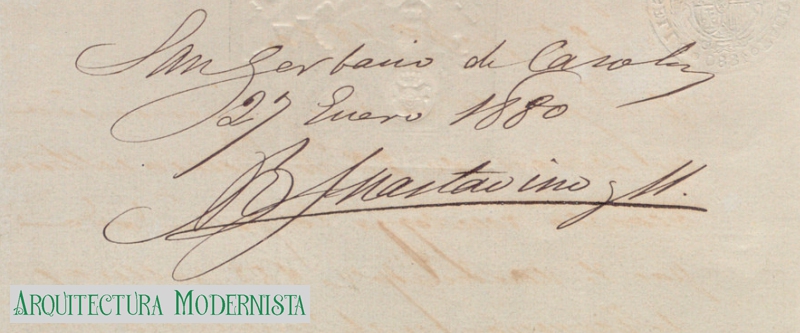 San Gervacio de Casolas
27 Enero 1880
R Guastavino y M.
ARQUITECTURA MODERNISTA